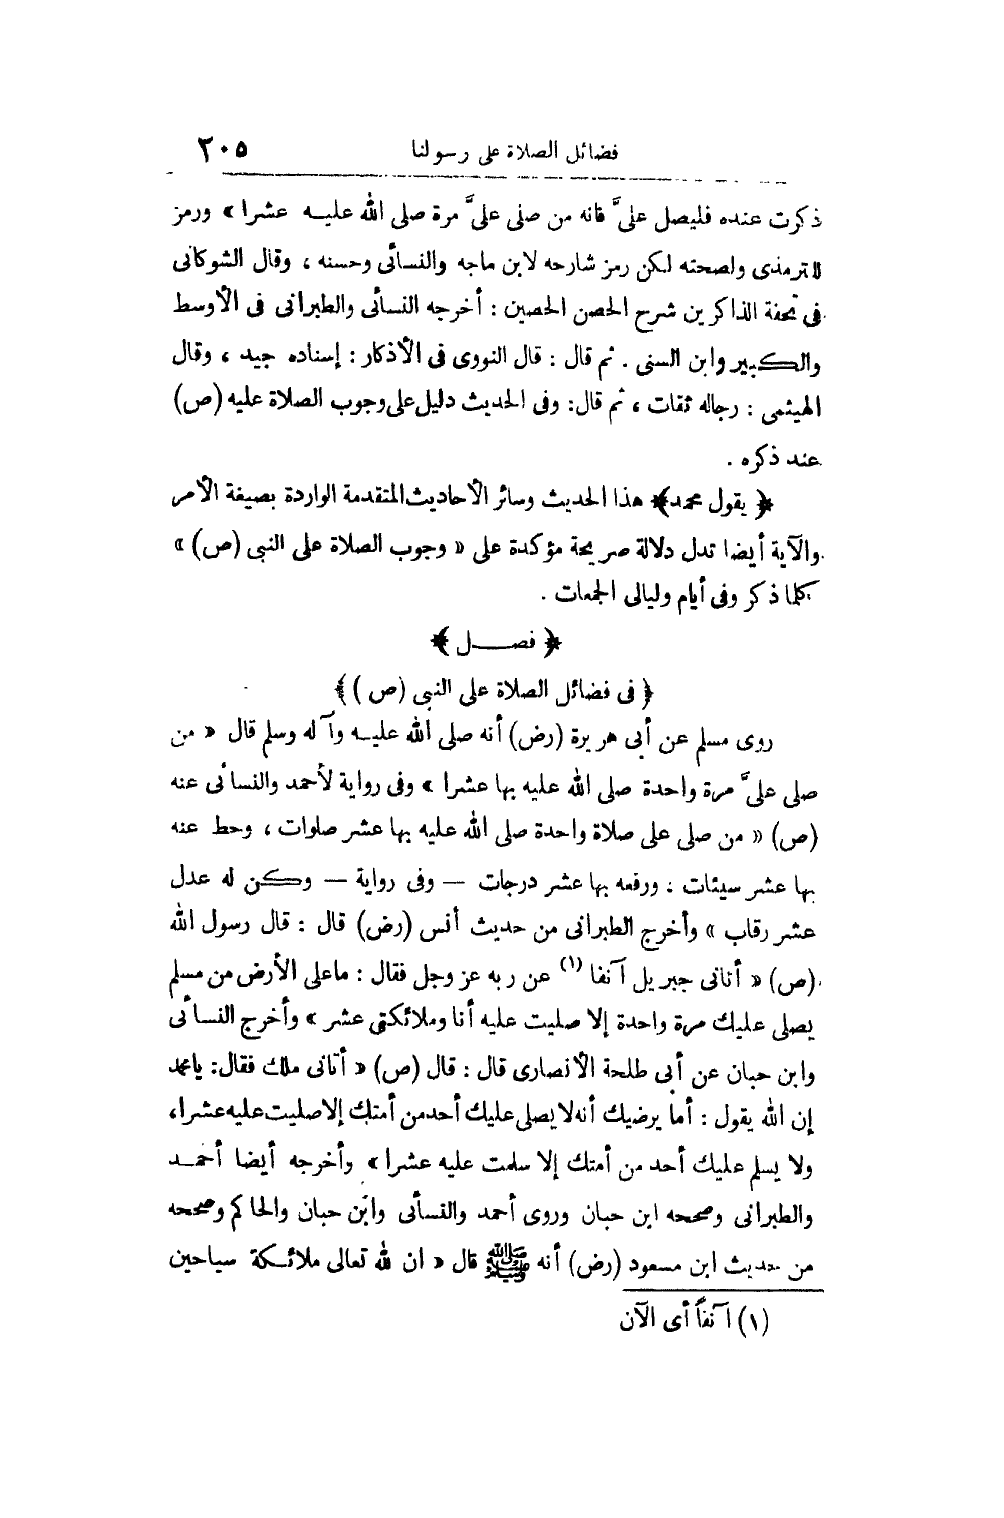 فضائل الصلاة على رسولنا ٢٠٥
ذكرت عنده فليصل علىَّ فانه من صلى علىَّ مرة صلى الله عليه عشرا » ورمز
لاترمذى ولصحته لكن رمز شارحه لابن ماجه والنسائى وحسنه ، وقال الشوكانى
فى تحفة الذاكرين شرح الحصن الحصين : أخرجه النسائى والطبرانى فى الأوسط
والكبير وابن السنى . ثم قال : قال النووى فى الأذكار : إسناده جيد ، وقال
الهيثمى : رجاله ثقات ، ثم قال : وفى الحديث دليل على وجوب الصلاة عليه (ص)
عند ذكره .
﴿ يقول محمد ﴾ هذا الحديث وسائر الأحاديث المتقدمة الواردة بصيغة الأمر
والآية أيضا تدل دلالة صريحة مؤكدة على « وجوب الصلاة على النبى (ص) »
كلما ذكر وفى أيام وليالى الجمعات .
﴿ فصـــل ﴾
﴿ فى فضائل الصلاة على النبى (ص) ﴾
روى مسلم عن أبى هريرة (رض) أنه صلى الله عليه وآله وسلم قال « من
صلى علىَّ مرة واحدة صلى الله عليه بها عشرا » وفى رواية لأحمد والنسائى عنه
(ص) « من صلى على صلاة واحدة صلى الله عليه بها عشر صلوات ، وحط عنه
بها عشر سيئات : ورفعه بها عشر درجات — وفى رواية — وكن له عدل
عشر رقاب » وأخرج الطبرانى من حديث أنس (رض) قال : قال رسول الله
(ص) « أتانى جبريل آنفا (١) عن ربه عز وجل فقال : ماعلى الأرض من مسلم
يصلى عليك مرة واحدة إلا صليت عليه أنا وملائكتى عشر » وأخرج النسائى
وابن حبان عن أبى طلحة الأنصارى قال : قال (ص) « أتانى ملك فقال : يامحمد
إن الله يقول : أما يرضيك أنه لا يصلى عليك أحد من أمتك إلا صليت عليه عشرا ،
ولا يسلم عليك أحد من أمتك إلا سلمت عليه عشرا » وأخرجه أيضا أحمد
والطبرانى وصححه ابن حبان وروى أحمد والنسائى وابن حبان والحاكم وصححه
من حديث ابن مسعود (رض) أنه ﷺ قال « ان لله تعالى ملائكة سياحين
(١) آنفاً أى الآن